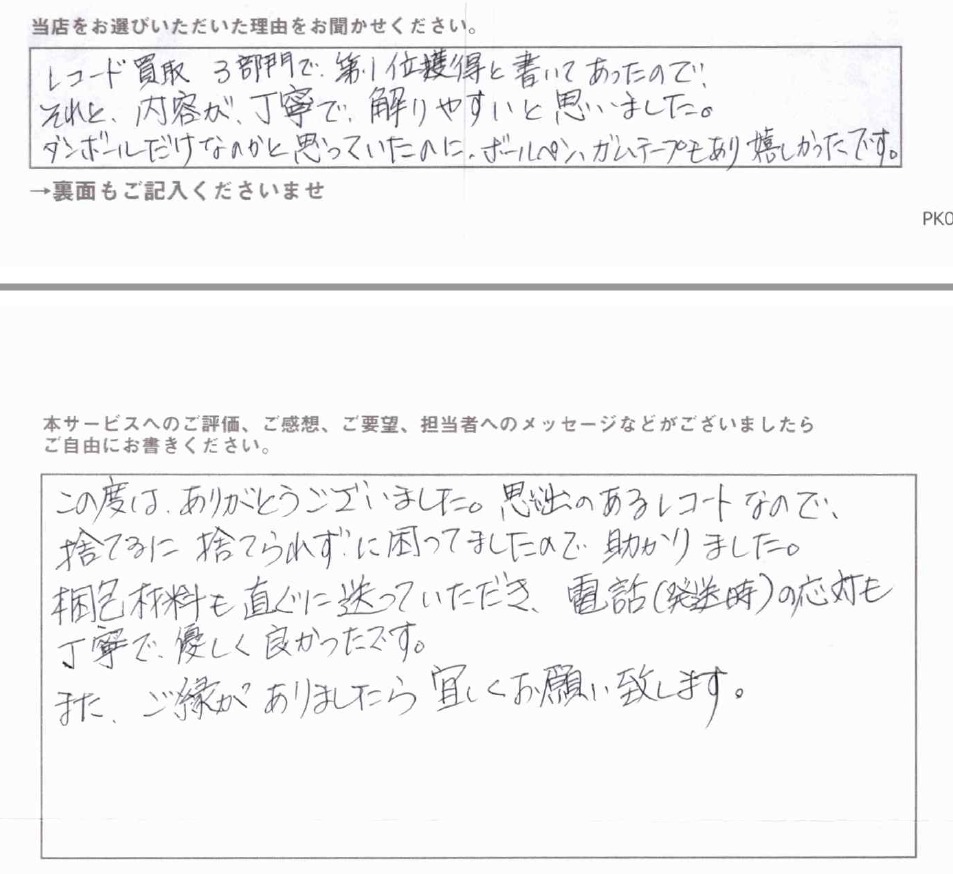 当店をお選びいただいた理由をお聞かせください。
レコード買取 3部門で、第1位獲得と書いてあったので、
それと、内容が、丁寧で、解りやすいと思いました。
ダンボールだけなのかと思っていたのに、ボールペン、ガムテープもあり嬉しかったです。
→裏面もご記入くださいませ
PK0
本サービスへのご評価、ご感想、ご要望、担当者へのメッセージなどがございましたら
ご自由にお書きください。
この度は、ありがとうございました。思い出のあるレコードなので、
捨てるに捨てられずに困ってましたので助かりました。
梱包材料も直ぐに送っていただき、電話(発送時)の応対も
丁寧で、優しく良かったです。
また、ご縁がありましたら宜しくお願い致します。